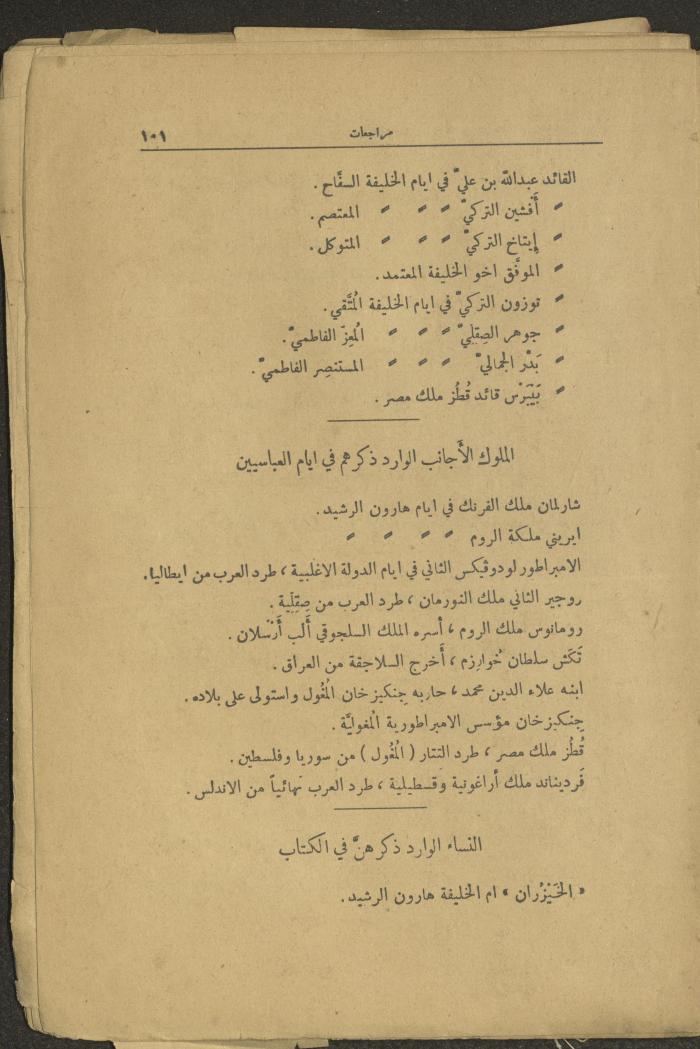 مراجعات ١٠١
القائد عبدالله بن عليّ في ايام الخليفة السفّاح .
〃 أَفشين التركيّ 〃 〃 〃 المعتصم .
〃 إِيتاخ التركيّ 〃 〃 〃 المتوكل .
〃 الموفّق اخو الخليفة المعتمد .
〃 توزون التركيّ في ايام الخليفة المُتَّقي .
〃 جوهر الصِقلِيّ 〃 〃 〃 المُعِزّ الفاطميّ .
〃 بَدْر الجماليّ 〃 〃 〃 المستنصِر الفاطميّ .
〃 بَيْبَرْس قائد قُطُز ملك مصر .
الملوك الأَجانب الوارد ذكرهم في ايام العباسيين
شارلمان ملك الفرنك في ايام هارون الرشيد .
ايريني ملكة الروم 〃 〃 〃 〃
الامبراطور لودوڤيكس الثاني في ايام الدولة الاغلبية ، طرد العرب من ايطاليا .
روجير الثاني ملك النورمان ، طرد العرب من صِقِلِّية .
رومانوس ملك الروم ، أسره الملك السلجوقي أَلب أَرْسلان .
تَكَش سلطان خُوارزم ، أَخرج السلاجقة من العراق .
ابنه علاء الدين محمد ، حاربه جِنكيزخان المُغُول واستولى على بلاده .
جِنكيزخان مؤسس الامبراطورية المغوليَّة .
قُطُز ملك مصر ، طرد التتار ( المُغُول ) من سوريا وفلسطين .
فَرديناند ملك أراغونية وقسطيلية ، طرد العرب نهائياً من الاندلس .
النساء الوارد ذكرهنَّ في الكتاب
« الخَيْزُران » ام الخليفة هارون الرشيد .